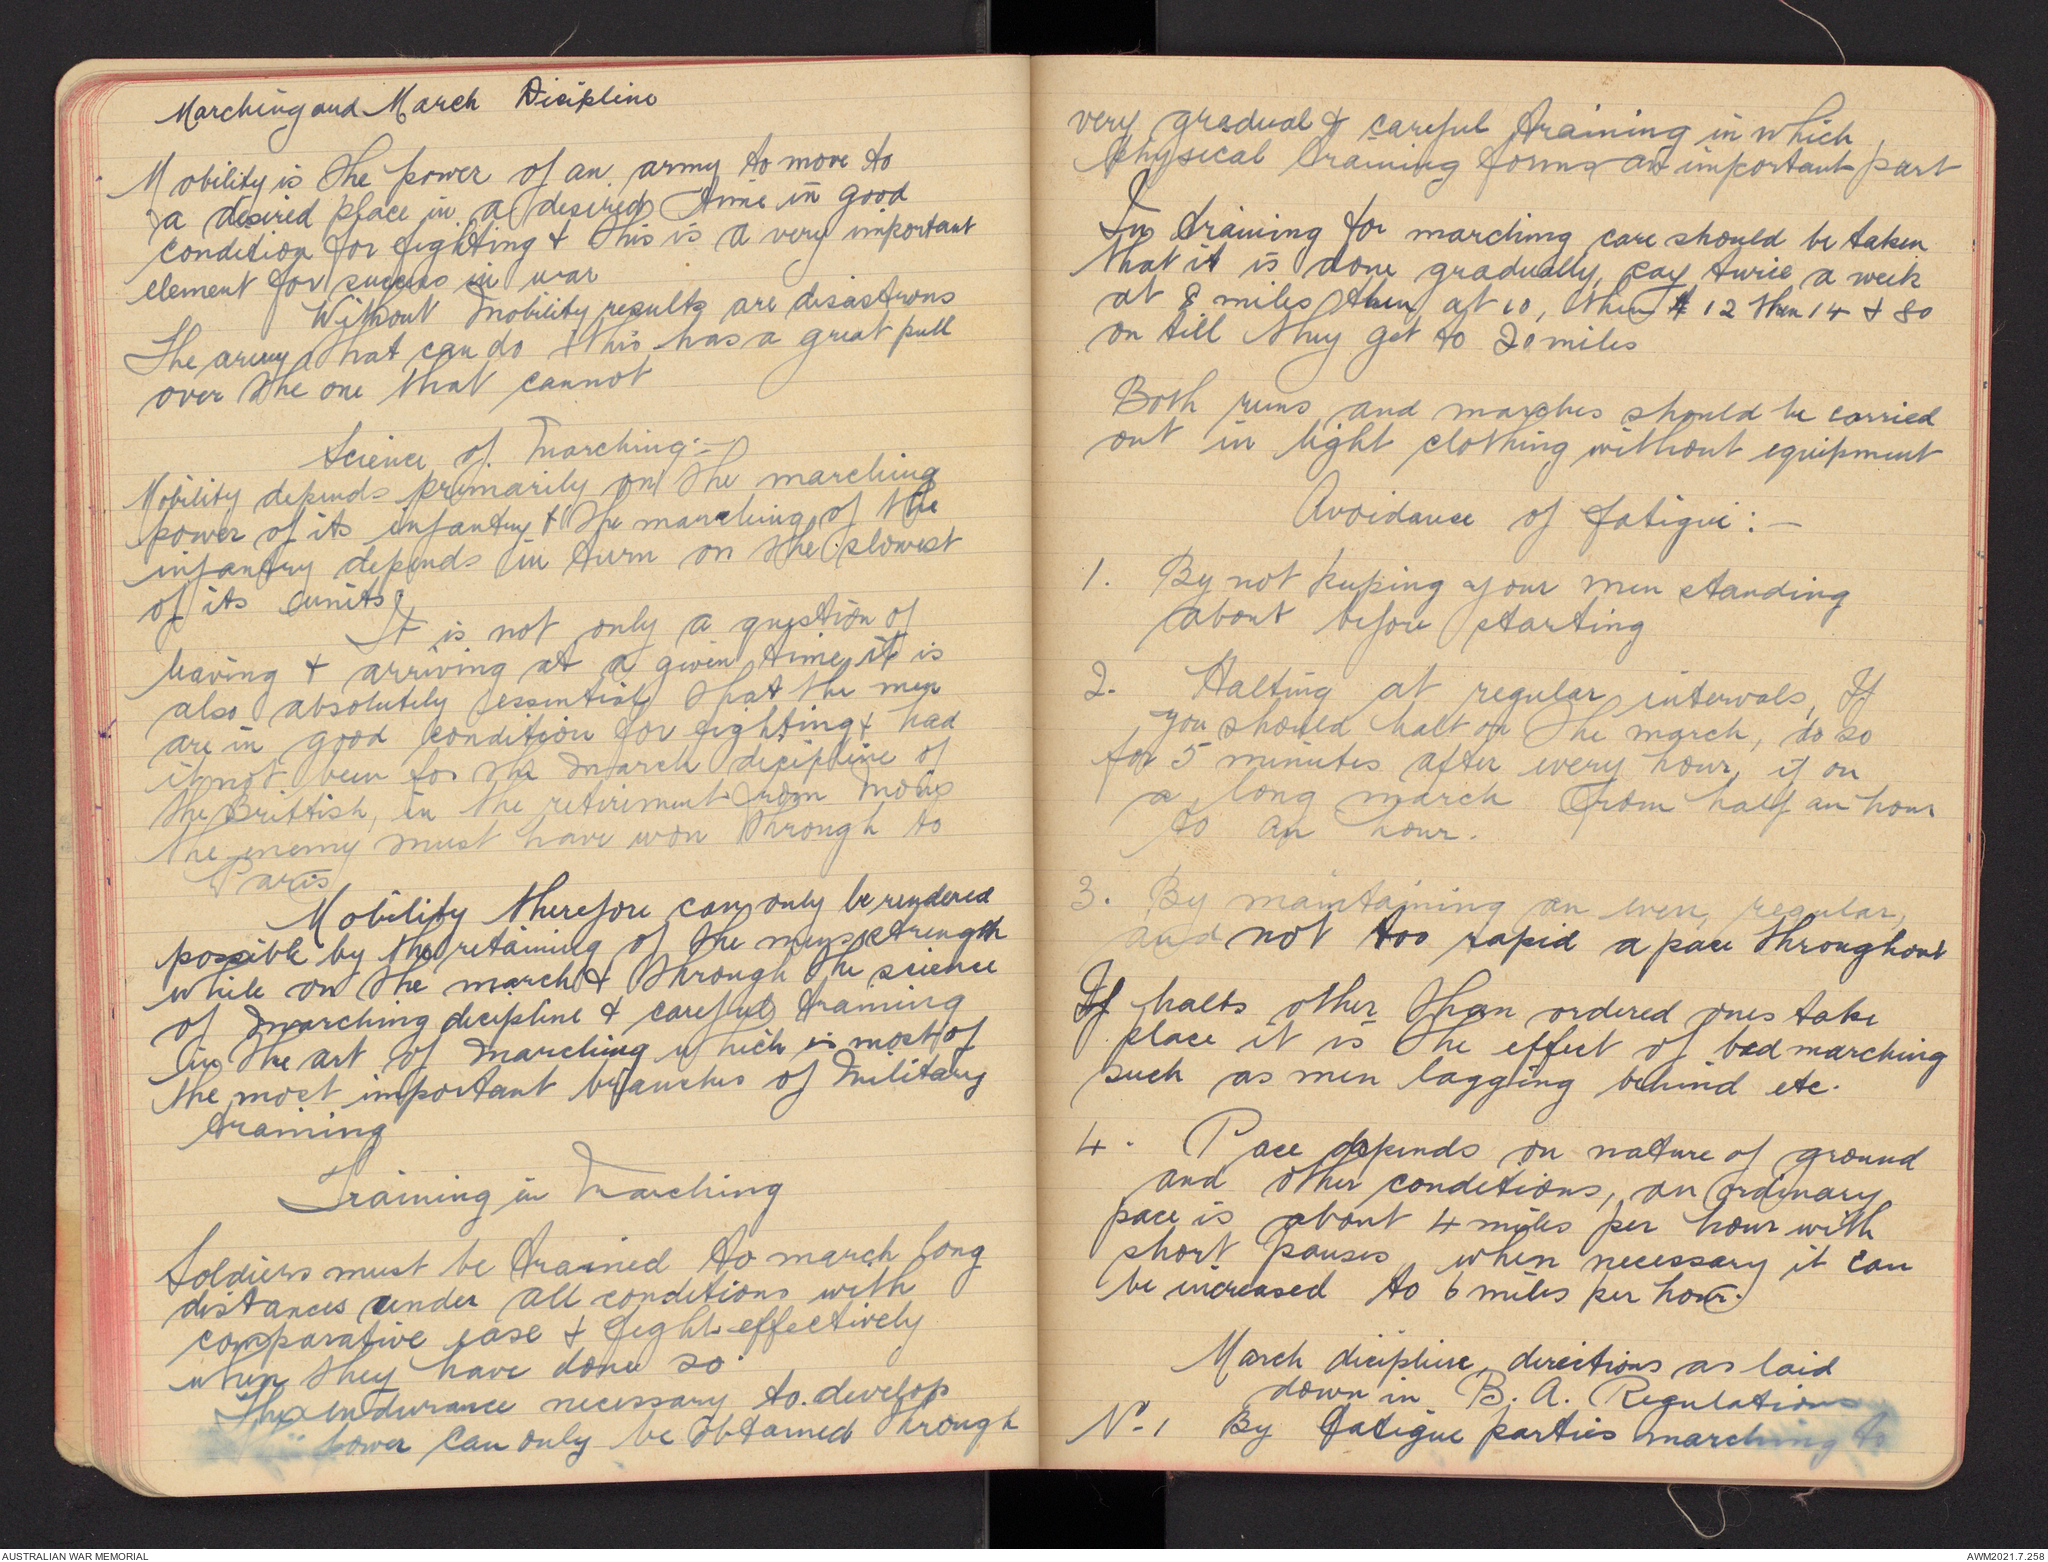 Marching and March Dicipline
Mobility is the power of an army to move to
a desired place in a desired time in good
condition for fighting & this is a very important
element for success in war
Without Mobility results are disastrous
The army that can do this has a great pull
over the one that cannot
Science of Marching:-
Mobility depends primarily on the marching
power of its infantry & the marching of the
infantry depends in turn on the slowest
of its units.
It is not only a question of
leaving & arriving at a given time, it is
also absolutely essential that the men
are in good condition for fighting & had
it not been for the march decipline of
the Brittish, in the retirement from Mons
the enemy must have won through to
Paris
Mobility therefore can only be rendered
possible by the retaining of the mens strength
while on the march & through the science
of marching decipline & careful training
in the art of marching which is most of
the most important branches of Military
training
Training in Marching
Soldiers must be trained to march long
distances under all conditions with
comparative ease & fight effectively
when they have done so.
The endurance necessary to develop
power can only be obtained through
very gradual & careful training in which
physical training forms an important part
In training for marching care should be taken
that it is done gradually, say twice a week
at 8 miles then at 10, then 12 then 14 & so
on till they get to 20 miles
Both runs and marches should be carried
out in light clothing without equipment
Avoidance of fatigue:-
1. By not keeping your men standing
about before starting
2. Halting at regular intervals, If
you should halt on the march, do so
for 5 minutes after every hour, if on
a long march from half an hour
to an hour.
3. By maintaining an even, regular,
and not too rapid a pace throughout
If halts other than ordered ones take
place it is the effect of bad marching
such as men lagging behind etc.
4. Pace depends on nature of ground
and other conditions, an ordinary
pace is about 4 miles per hour with
short pauses, when necessary it can
be increased to 6 miles per hour.
March dicipline, directions as laid
down in B. A. Regulations
No. 1 By fatigue parties marching to
AUSTRALIAN WAR MEMORIAL
AWM2021.7.258